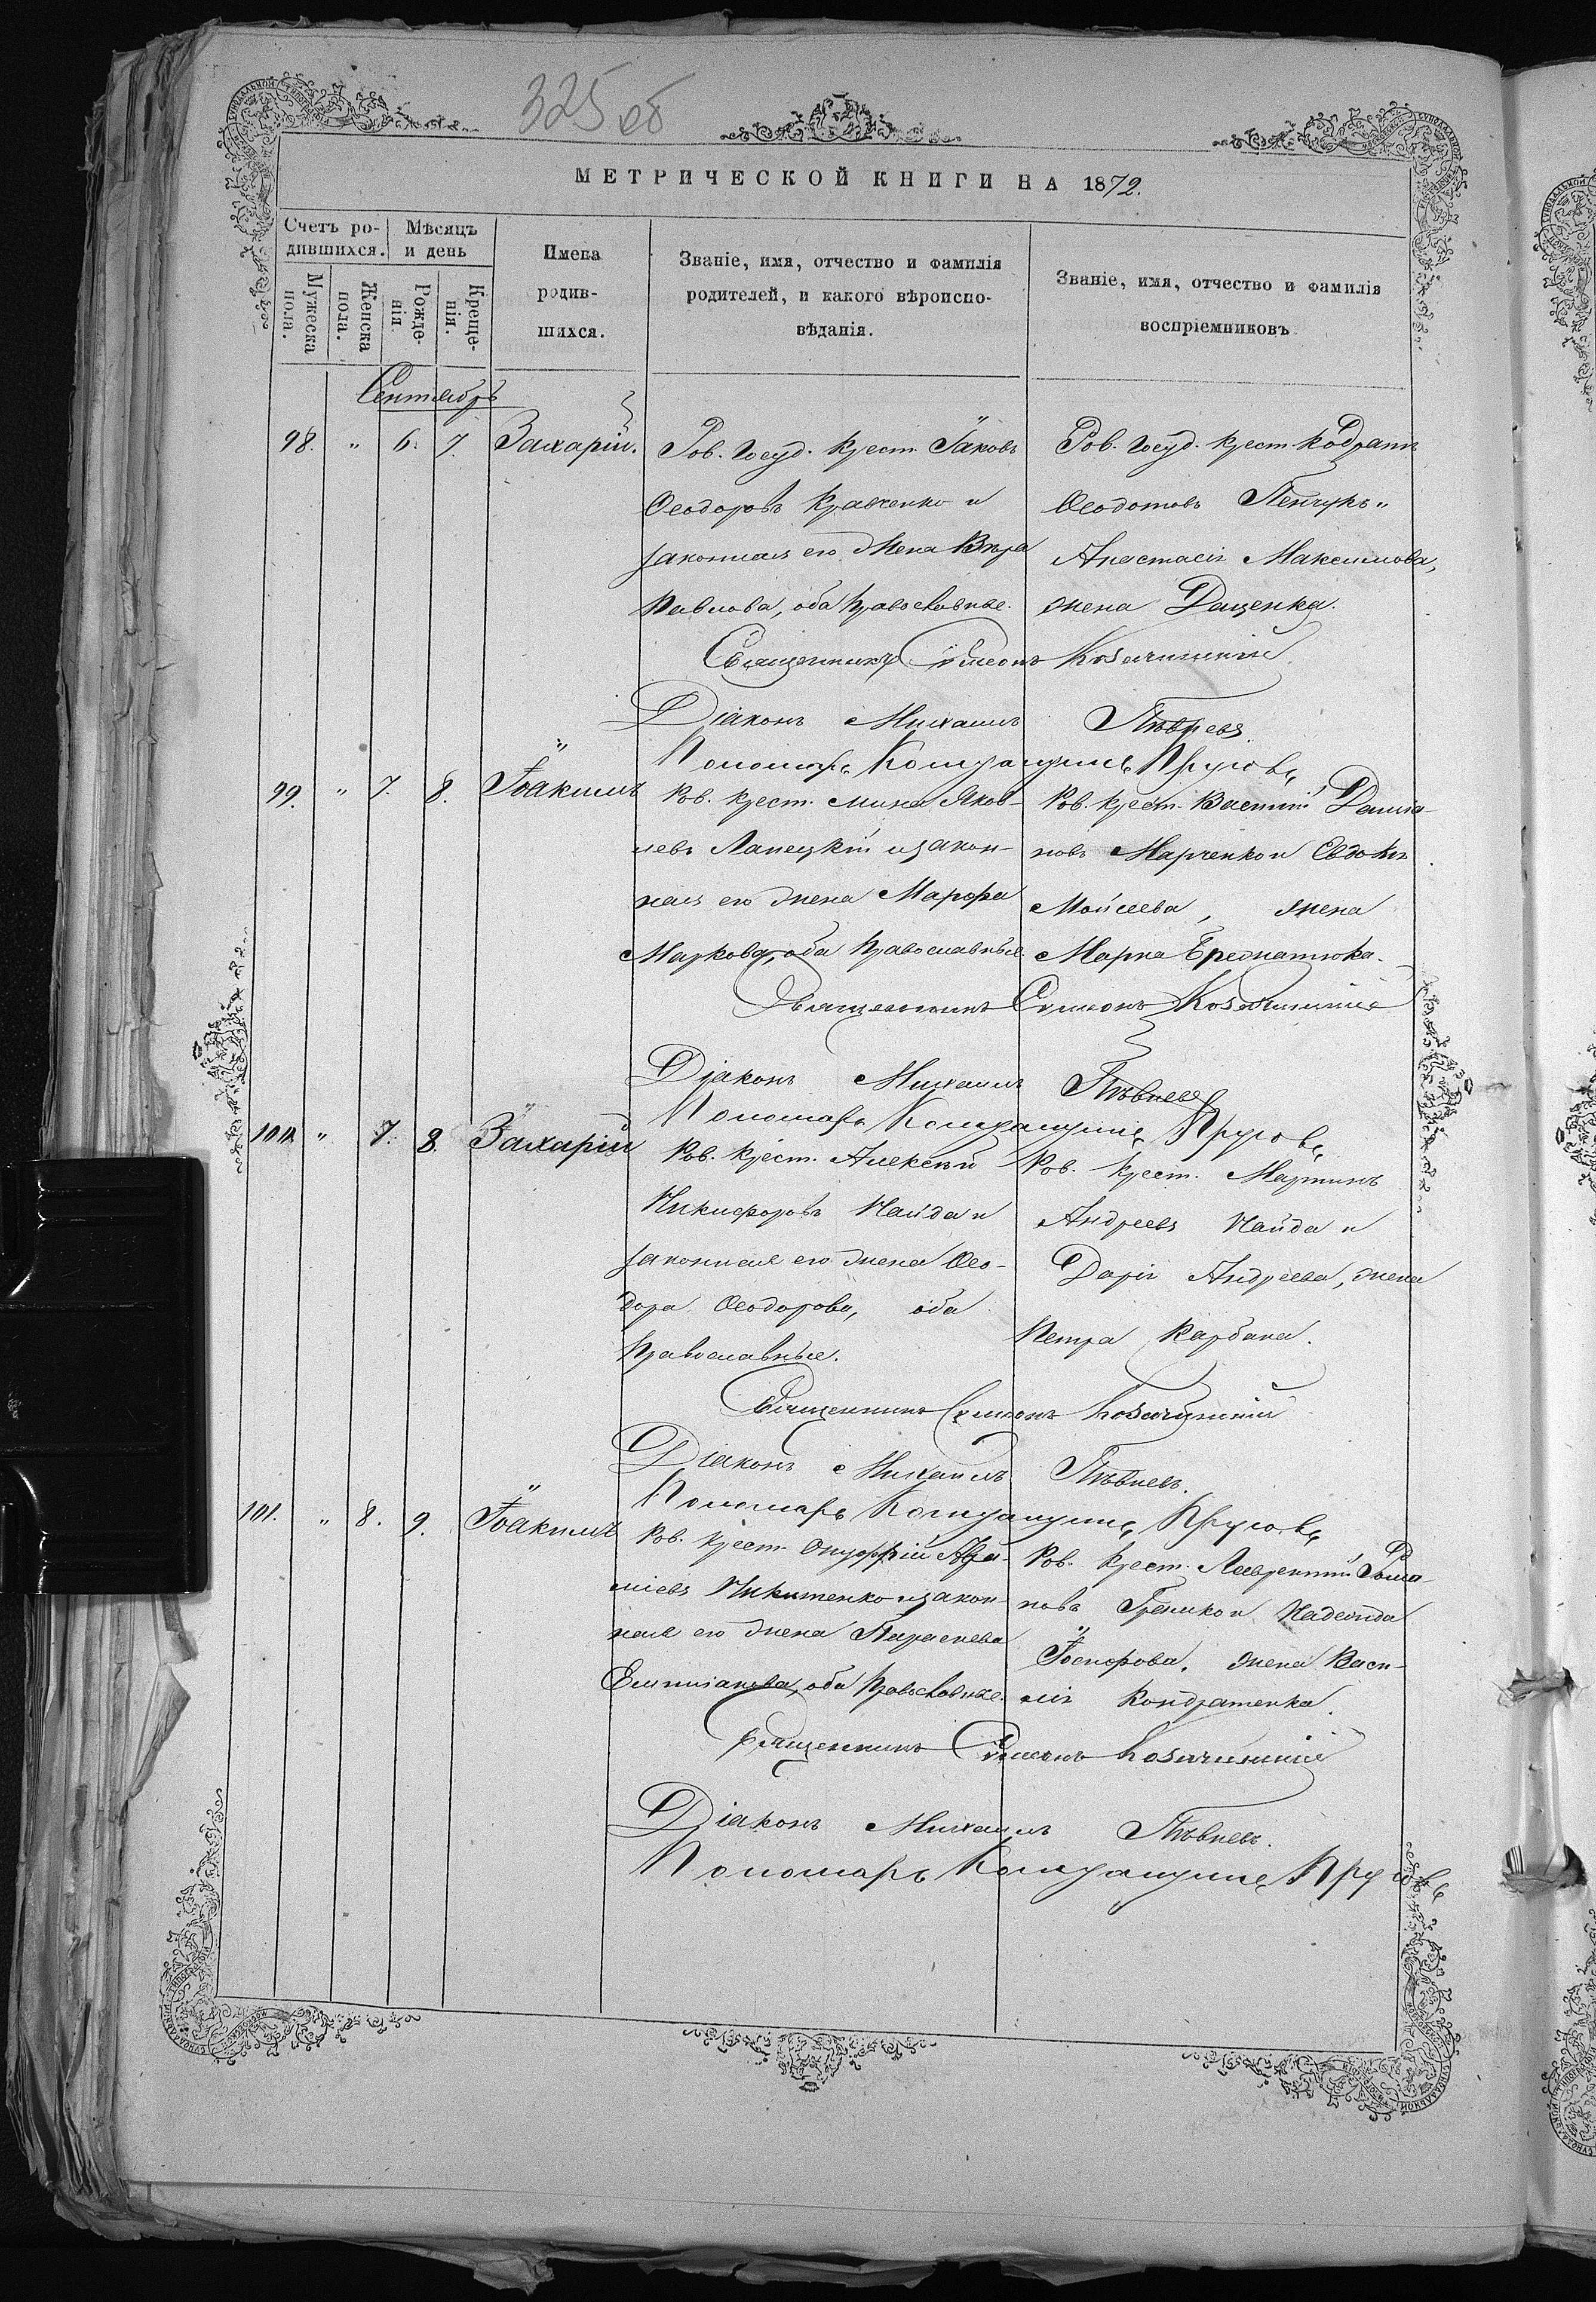 325 об
МЕТРИЧЕСКОЙ КНИГИ НА 1872.
Счетъ ро-
дившихся.
Мѣсяцъ
и день
Мужеска пола.
Женска пола.
Рожде-
нія
Креще-
нія.
Имена
родив-
шихся.
Званіе, имя, отчество и фамилія
родителей, и какого вѣроиспо-
вѣданія.
Званіе, имя, отчество и фамилія
воспріемниковъ
Сентябрь
98. " 6. 7. Захарій.
Ров. Госуд. Крест. Іаковъ
Ѳеодоровъ Кравченко и
законная его жена Вѣра
Павлова, оба православные.
Ров. Госуд. Крест. Кодратъ
Ѳеодотовъ
Анастасія Максимова,
жена Даценка.
Священникъ Сѵмеонъ Козачинскій
Діаконъ Михаилъ Пѣвневъ.
Пономарь
99. " 7. 8. Іоакимъ
Ров. Крест. Мина Яков-
левъ Лапецкій и закон-
ная его жена Марфа
Маркова, оба православные.
Ров. Крест. Василій Дамиа-
новъ Марченко и Евдокія
Моисеева, жена
Марка
Священникъ Сѵмеонъ Козачинскій
Діаконъ Михаилъ Пѣвневъ
Пономарь
100. " 7. 8. Захарій
Ров. Крест. Алексѣй
Никифоровъ Найда и
законная его жена Ѳео-
дора Ѳеодорова, оба
православные.
Ров. Крест. Мартинъ
Андреевъ Найда и
Дарія Андреева, жена
Петра Карбана.
Священникъ Сѵмеонъ Козачинскій
Діаконъ Михаилъ Пѣвневъ.
Пономарь
101. " 8. 9. Іоакимъ
Ров. Крест. Онуфрій
Никитенко и закон-
ная его жена Параскева
Емилианова, оба православные.
Ров. Крест. Лаврентій Рома-
новъ и Надежда
Іосифова, жена Васи-
лія Кондратенка.
Священникъ Сѵмеонъ Козачинскій
Діаконъ Михаилъ Пѣвневъ.
Пономарь